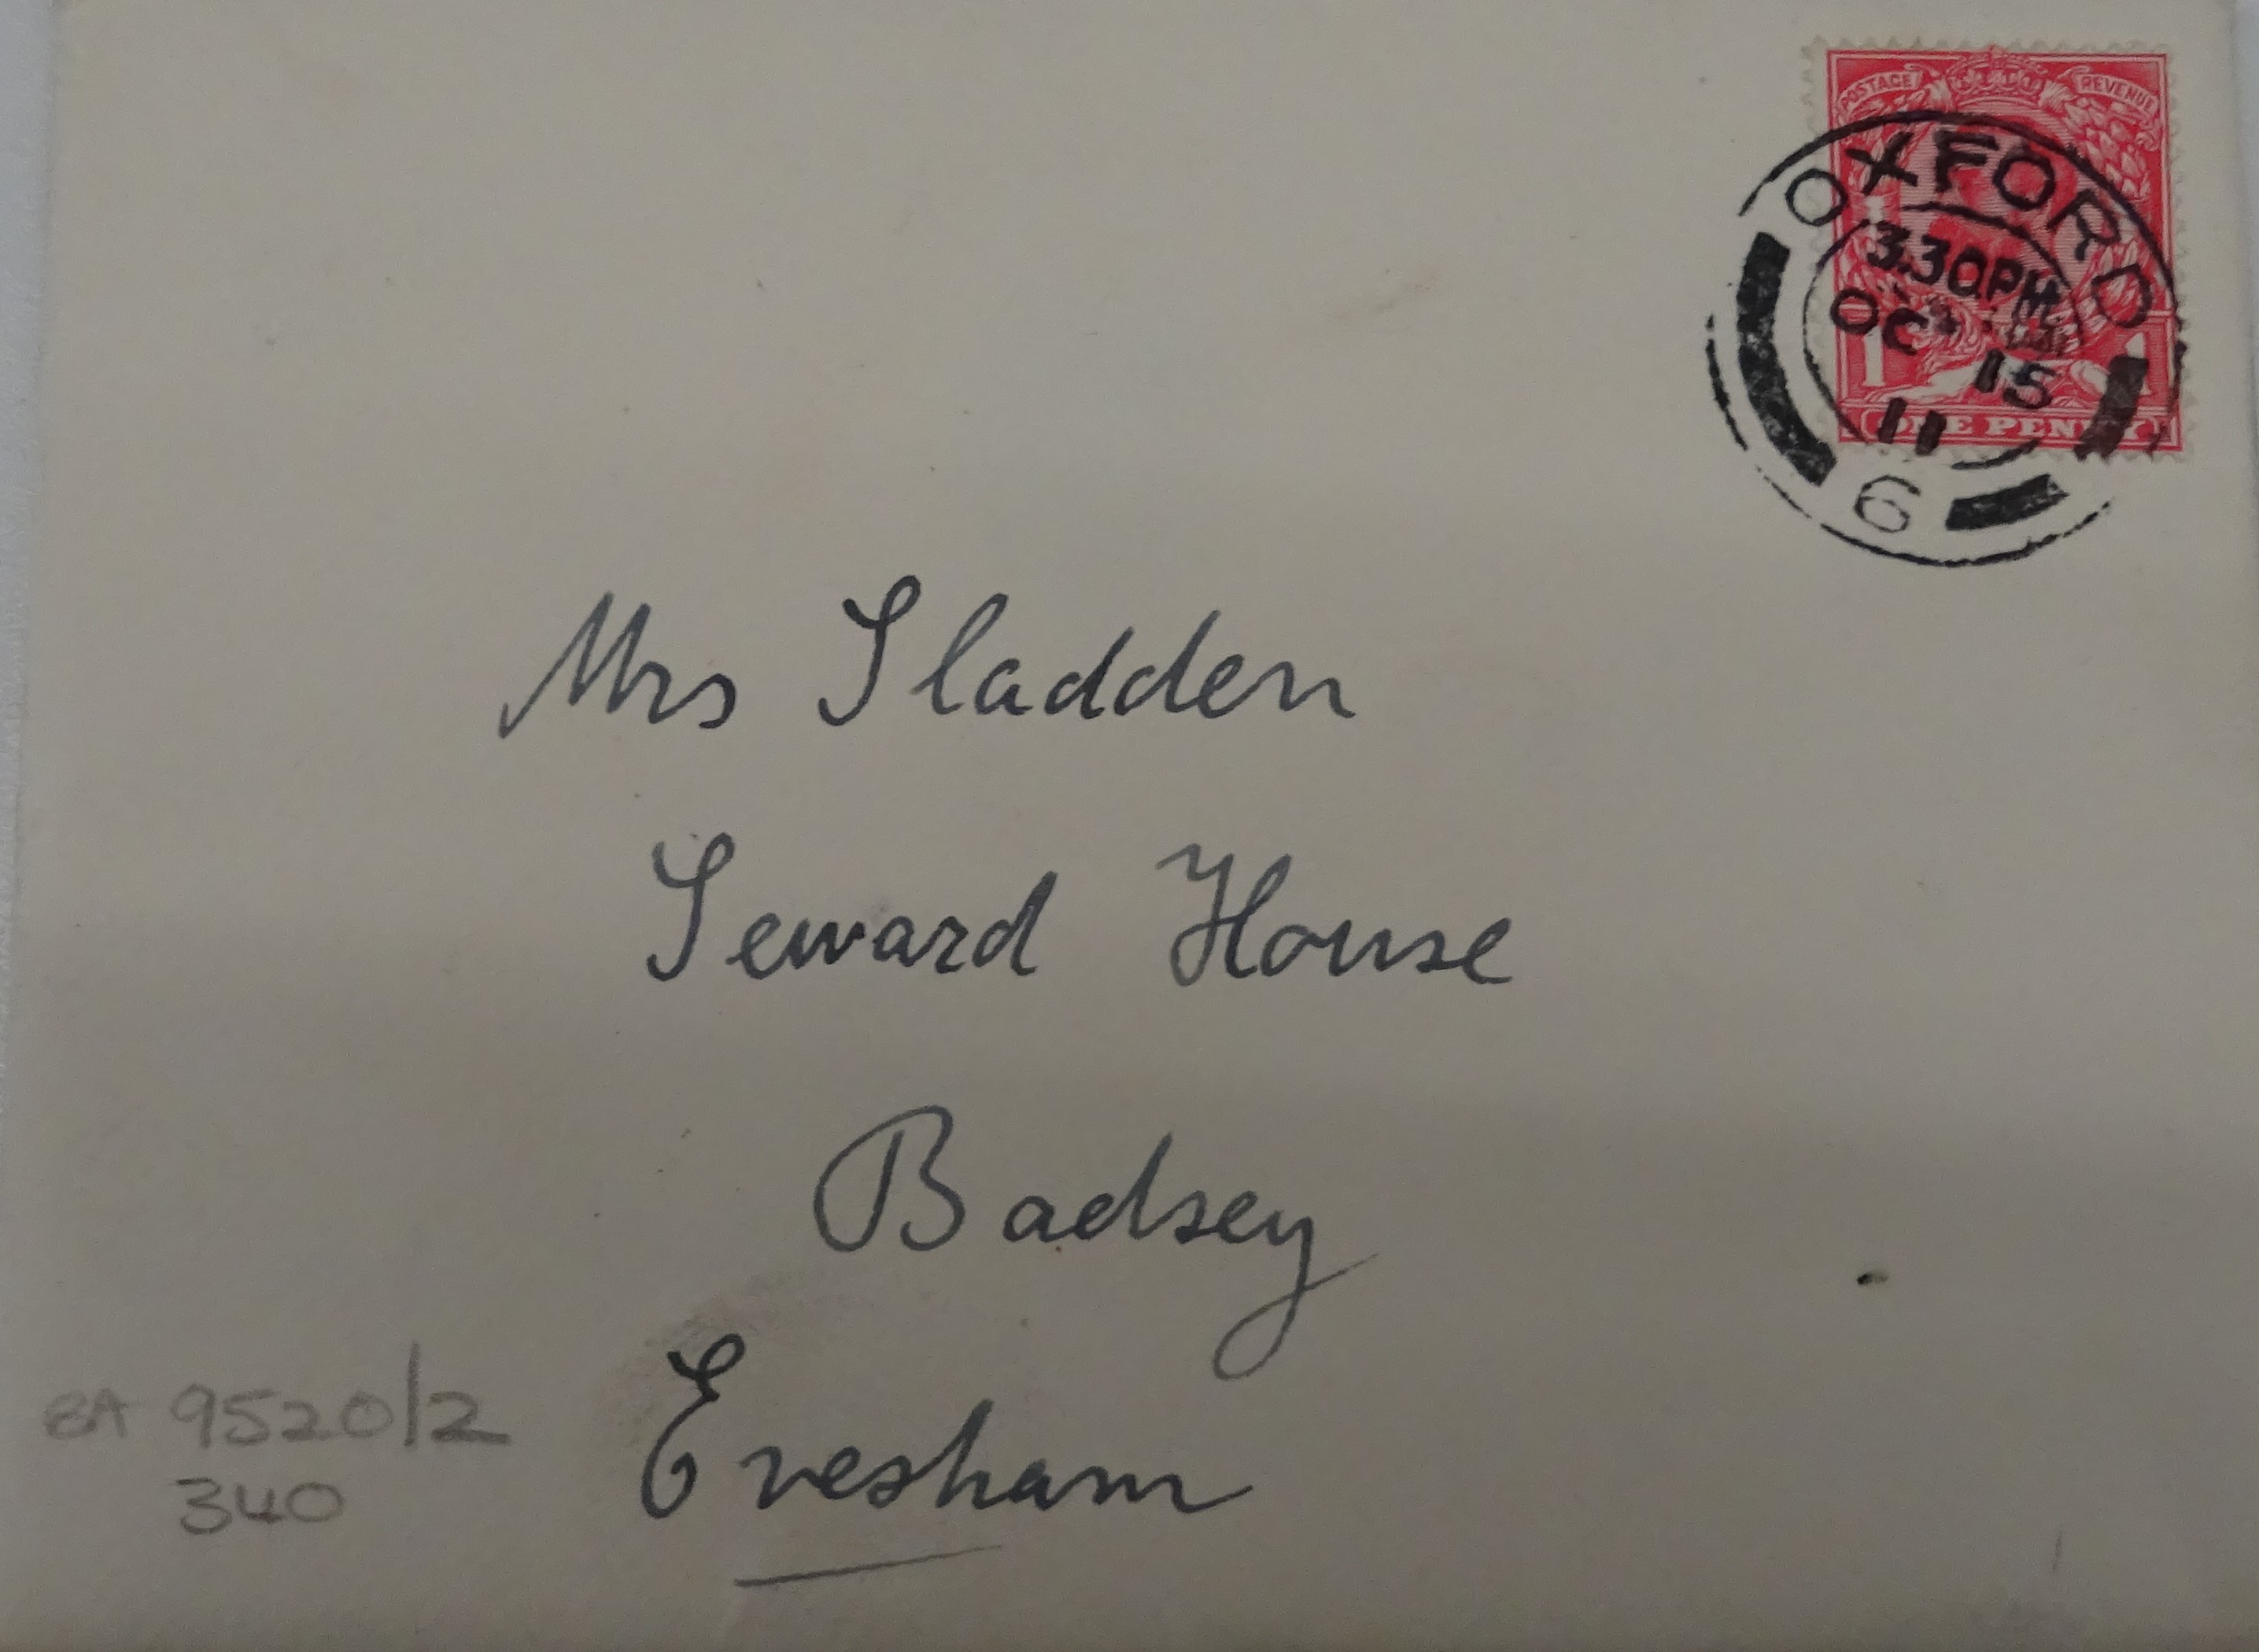 POSTAGE REVENUE
OXFORD
3.30PM
OC 15
11
1 1
ONE PENNY
6
Mrs Sladden
Seward House
Badsey
Evesham
BA 9520/2
340